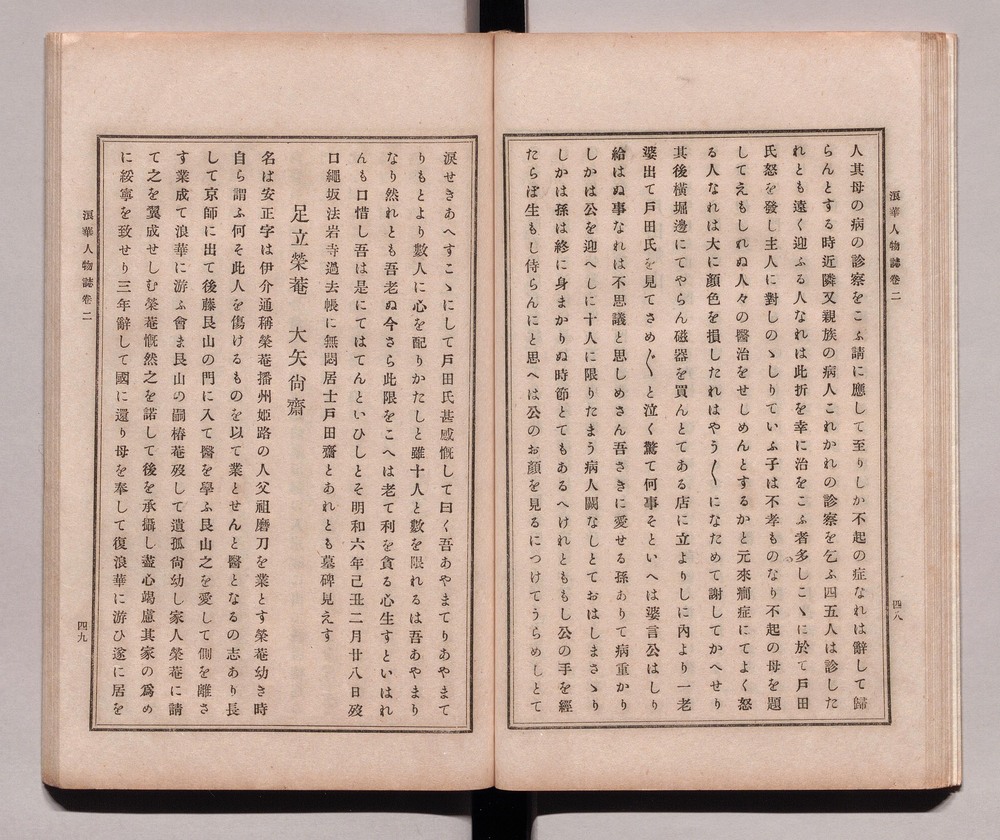 浪華人物誌卷二
四八
人其母の病の診察をこふ請に應して至りしか不起の症なれは辭して歸
らんとする時近隣又親族の病人これかれの診察を乞ふ四五人は診した
れとも遠く迎ふる人なれは此折を幸に治をこふ者多しこゝに於て戸田
氏怒を發し主人に對しのゝしりていふ子は不孝ものなり不起の母を題
してえもしれぬ人々の醫治をせしめんとするかと元來癇症にてよく怒
る人なれは大に顏色を損したれはやう〱になためて謝してかへせり
其後橫堀邊にてやらん磁器を買んとてある店に立よりしに內より一老
婆出て戸田氏を見てさめ〲と泣く驚て何事そといへは婆言公はしり
給はぬ事なれは不思議と思しめさん吾さきに愛せる孫ありて病重かり
しかは公を迎へしに十人に限りたまう病人闕なしとておはしまさゝり
しかは孫は終に身まかりぬ時節とてもあるへけれとももし公の手を經
たらは生もし侍らんにと思へは公のお顏を見るにつけてうらめしとて
淚せきあへすこゝにして戸田氏甚感慨して曰く吾あやまてりあやまて
りもとより數人に心を配りかたしと雖十人と數を限れるは吾あやまり
なり然れとも吾老ぬ今さら此限をこへは老て利を貪る心生すといはれ
んも口惜し吾は是にてはてんといひしとそ明和六年己丑二月廿八日歿
口繩坂法岩寺過去帳に無悶居士戸田齋とあれとも墓碑見えす
足立榮菴　大矢尙齋
名は安正字は伊介通稱榮菴播州姬路の人父祖磨刀を業とす榮菴幼き時
自ら謂ふ何そ此人を傷けるものを以て業とせんと醫となるの志あり長
して京師に出て後藤艮山の門に入て醫を學ふ艮山之を愛して側を離さ
す業成て浪華に游ふ會ま艮山の嗣椿菴歿して遺孤尙幼し家人榮菴に請
て之を翼成せしむ榮菴慨然之を諾して後を承攝し盡心竭慮其家の爲め
に綏寧を致せり三年辭して國に還り母を奉して復浪華に游ひ遂に居を
浪華人物誌卷二
四九